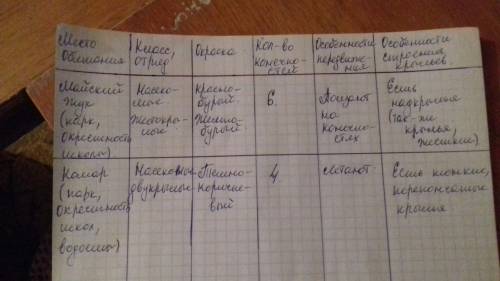 Место Обитания
Класс, отряд
Окраска
Кол-во конечностей
Особенности передвижения
Особенности строения крыльев.
Майский жук (парк, окрестность школы)
Насекомые Жесткокрылые
красно-бурый. Желто-бурый
6.
Ползают на конечностях
Есть надкрылья (так-же крылья, жесткие)
Комар (парк, окрестность школ, водоемы)
Насекомые двукрылые
Темно-коричневый
4
летают.
Есть тонкие, перепончатые крылья